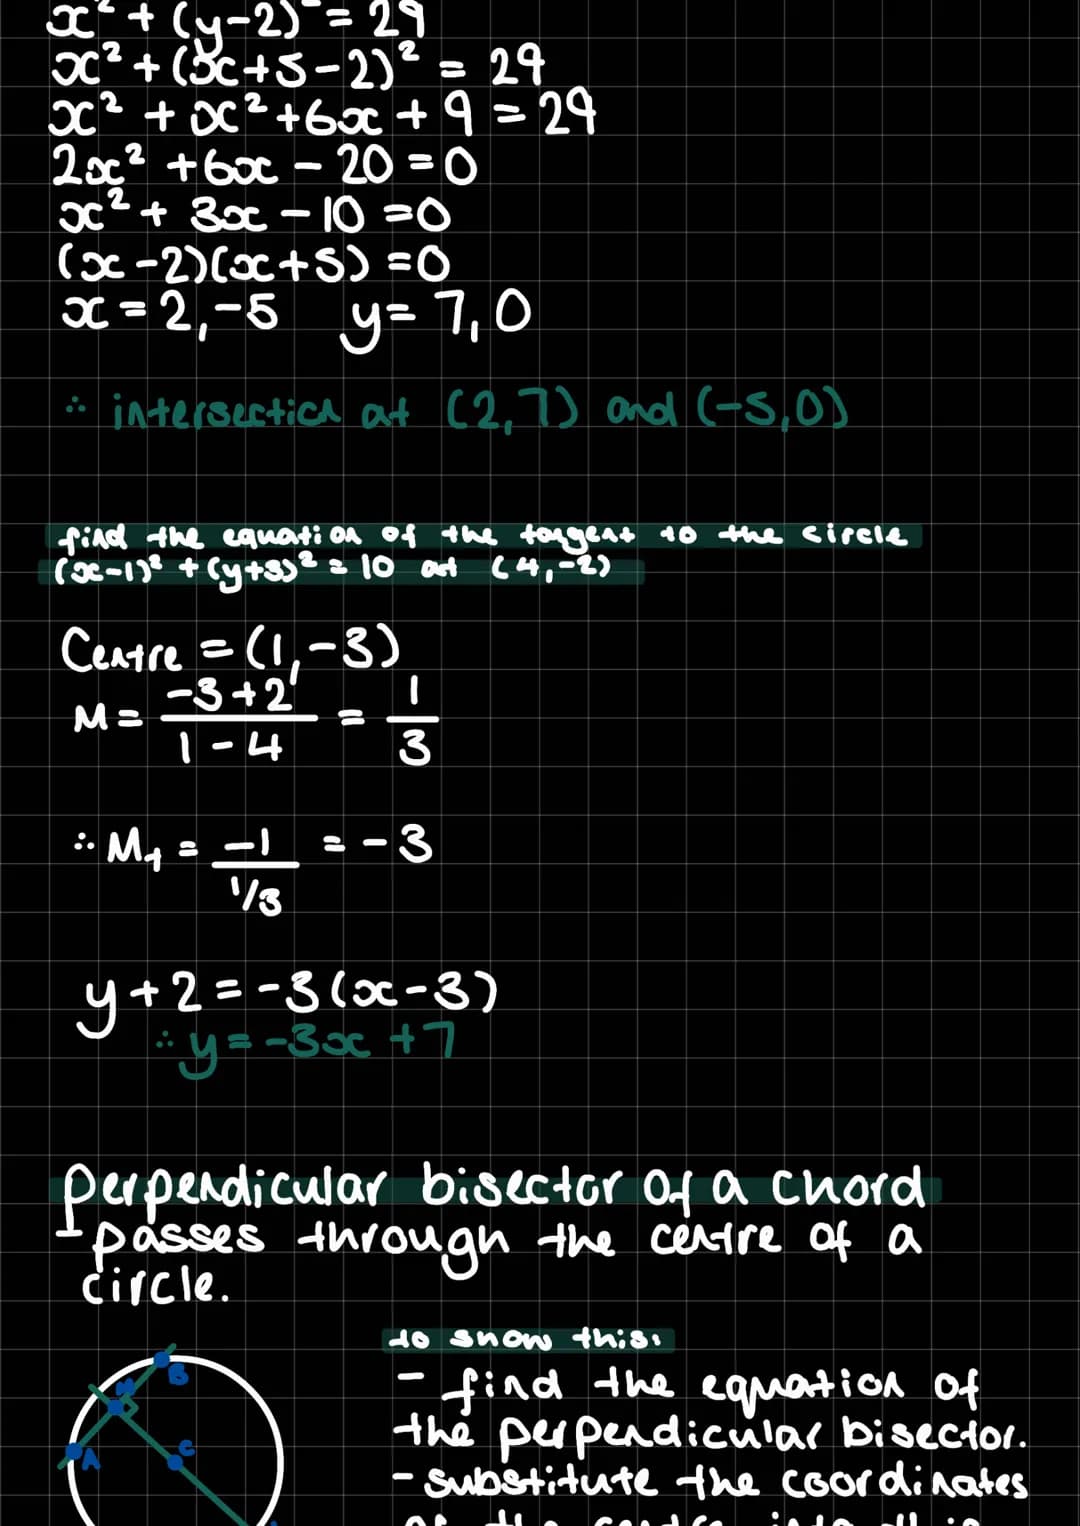 x² + (y-2)² = 29
x² + (x+5-2)² = 29
x² + x² + 6x + 9 = 29
2x² + 6x - 20 = 0
x² + 3x - 10 = 0
(x-2)(x+5) = 0
x = 2, -5 y = 7, 0
∴ intersection at (2,7) and (-5,0)
find the equation of the tangent to the circle
(x-1)² + (y+3)² = 10 at (4,-2)
Centre = (1,-3)
M = (-3+2)/(1-4) = 1/3
∴ M₁ = -1/(1/3) = -3
y+2 = -3(x-3)
∴ y = -3x + 7
perpendicular bisector of a chord
- passes through the centre of a
circle.
to show this:
- find the equation of
the perpendicular bisector.
- substitute the coordinates
of the centre into this
B
M
A
C